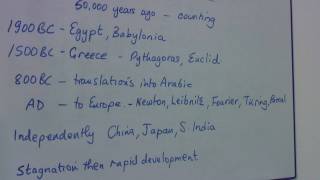 50,000 years ago - counting
1900BC - Egypt, Babylonia
1500BC - Greece - Pythagoras, Euclid
800BC - translations into Arabic
AD - to Europe - Newton, Leibnitz, Fourier, Turing,
Independently China, Japan, S. India
Stagnation then rapid development